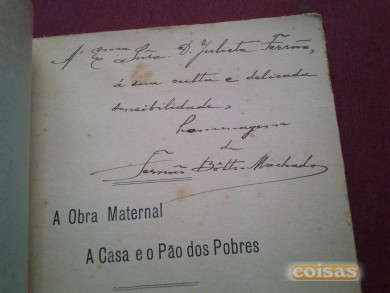 À Exma Snra. D. Julieta Ferrão,
á sua culta e delicada
sensibilidade,
homenagem
de
Fernão Bôtto-Machado
A Obra Maternal
A Casa e o Pão dos Pobres
coisas